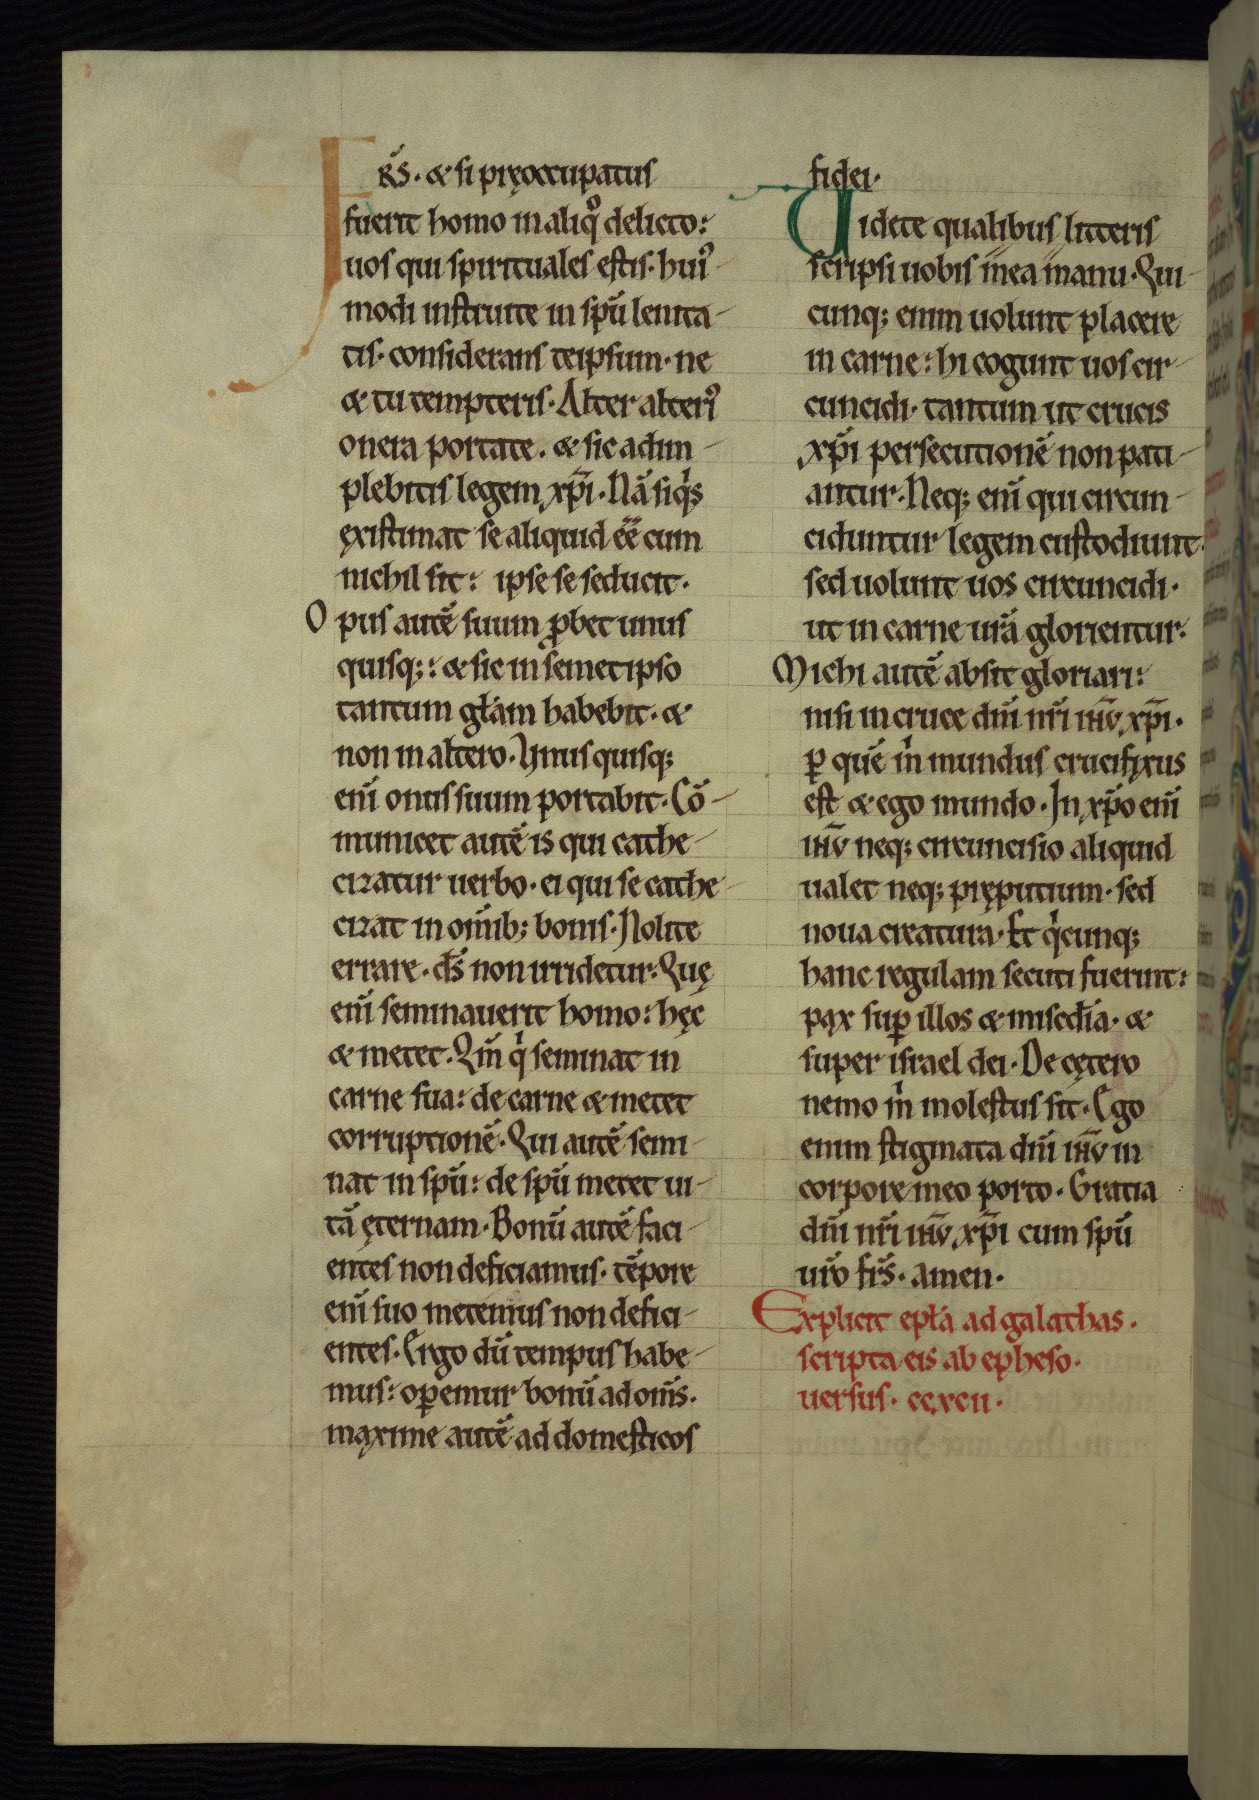 FRS̄. & si pręoccupatus
fuerit homo in aliqͦ delicto:
uos qui spirituales estis. hui᾽
modi instruite in spū lenita-
tis. considerans teipsum. ne
& tu tempteris. Alter alteri᾽
onera portate. & sic adim-
plebitis legem xp̄i. Nā siqͥs
ęxistimat se aliquid eē cum
nichil sit: ipse se seducit.
Opus autē suum ꝓbet unus
quisq;: & sic in semetipso
tantum głam habebit. &
non in altero. Unusquisq;
enī onus suum portabit. Cō-
municet autē is qui cathe-
cizatur uerbo. ei qui se cathe-
cizat in om̄ib; bonis. Nolite
errare. ds̄ non irridetur. Quę
enī seminauerit homo: hęc
& metet. Qm̄ qͥ seminat in
carne sua: de carne & metet
corruptionē. Qui autē semi-
nat in spū: de spū metet ui-
tā ęternam. Bonū autē faci-
entes non deficiamus. tēpore
enī suo metemus non defici-
entes. Ergo dū tempus habe-
mus: opemur bonū ad om̄s.
maxime autē ad domesticos
fidei.
Uidete qualibus litteris
scripsi uobis mea manu. Qui-
cunq; enim uolunt placere
in carne: hi cogunt uos cir-
cuncidi. tantum ut crucis
xp̄i persecutionē non pati-
antur. Neq; enī qui circun-
ciduntur legem custodiunt.
sed uolunt uos circuncidi.
ut in carne ur̄a glorientur.
Michi autē absit gloriari:
nisi in cruce dn̄i nr̄i ih̄u xp̄i.
ꝑ quē m̄ mundus crucifixus
est & ego mundo. In xp̄o enī
ih̄u neq; circuncisio aliquid
ualet neq; pręputium. sed
noua creatura. Et qͥcunq;
hanc regulam secuti fuerint:
pax suꝑ illos & misedīa. &
super israel dei. De cętero
nemo m̄ molestus sit. Ego
enim stigmata dn̄i ih̄u in
corpore meo porto. Gratia
dn̄i nr̄i ih̄u xp̄i cum spū
ur̄o frs̄. amen.
Explicit epła ad galathas.
scripta eis ab epheso.
uersus. ccxcii.